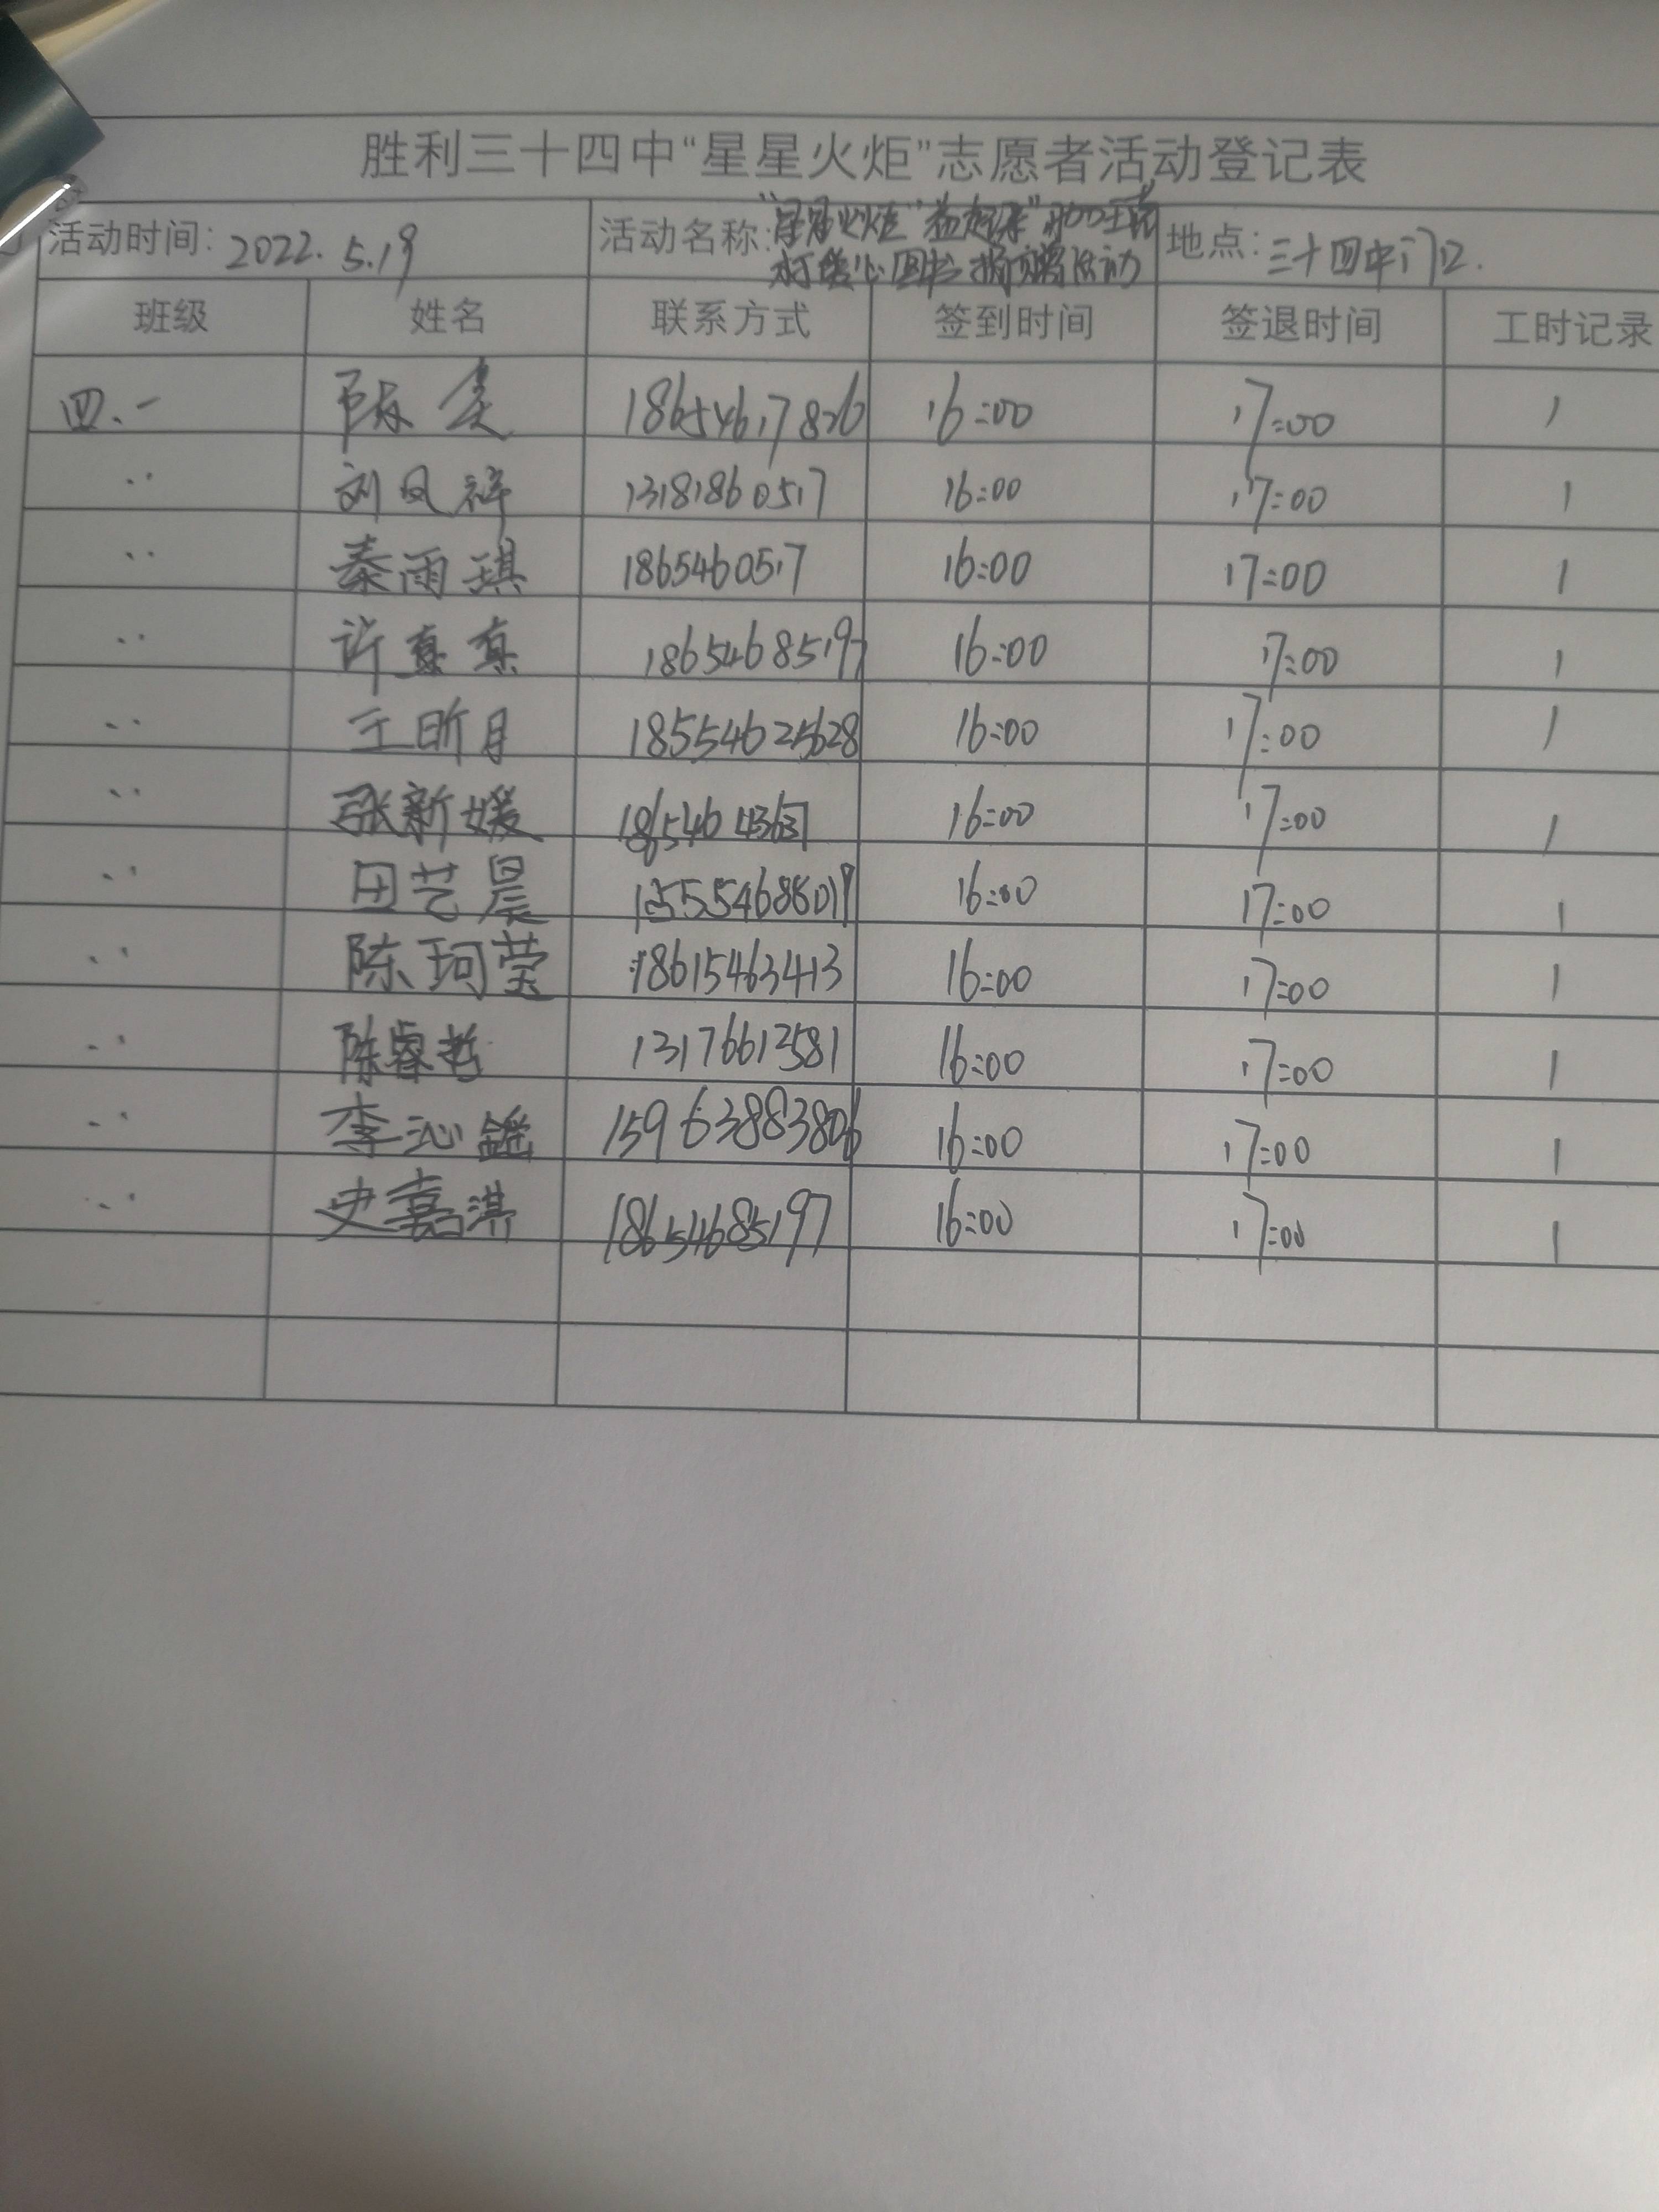 胜利三十四中“星星火炬”志愿者活动登记表
活动时间: 2022.5.19 活动名称: 地点: 三十四中门口.
班级 姓名 联系方式 签到时间 签退时间 工时记录
四.一 陈 18654617826 16:00 17:00 1
〃 刘风祥 13181860517 16:00 17:00 1
〃 秦雨琪 1865460517 16:00 17:00 1
〃 许真真 18654685197 16:00 17:00 1
〃 王昕月 18554625628 16:00 17:00 1
〃 张新媛 16:00 17:00 1
〃 田艺晨 16:00 17:00 1
〃 陈珂莹 18615463413 16:00 17:00 1
〃 陈睿哲 13176612581 16:00 17:00 1
〃 李沁鑫 15963883806 16:00 17:00 1
〃 史嘉淇 18654685197 16:00 17:00 1